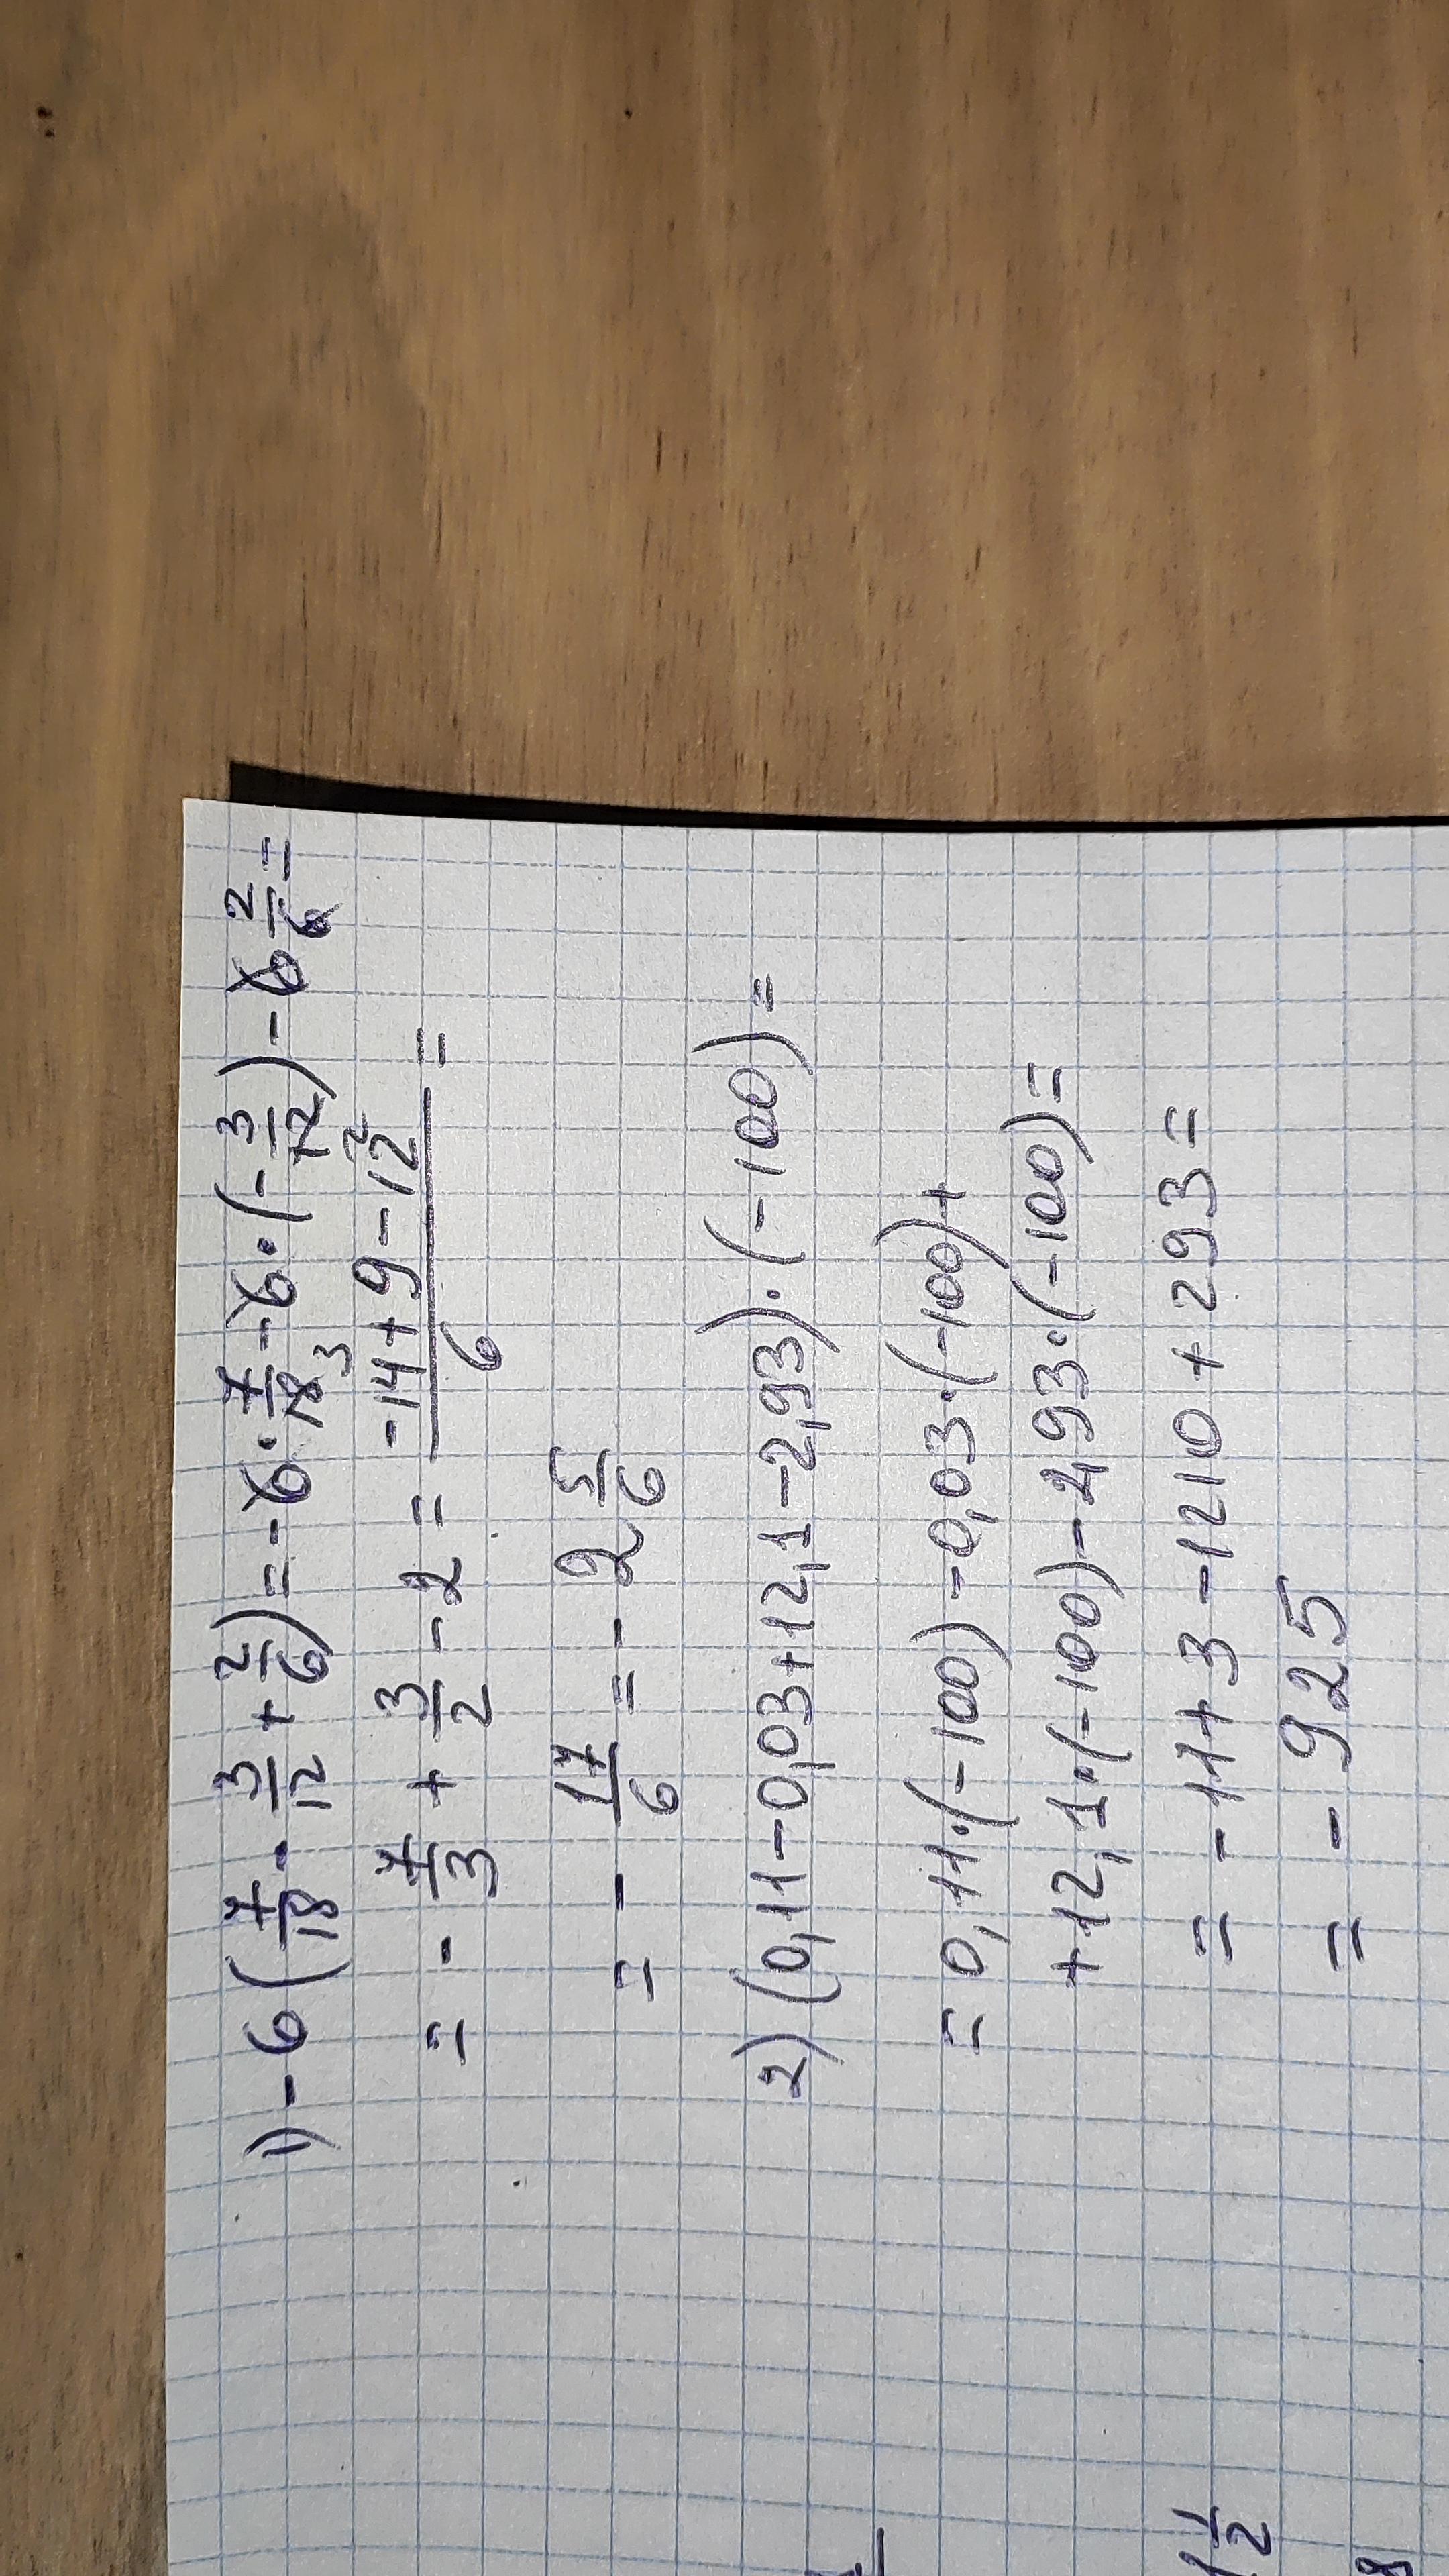 1) - 6 (7/18 - 3/12 + 2/6) = - 6 · 7/18 3 - 6 · (- 3/12 2) - 6 2/6 =
= - 7/3 + 3/2 - 2 = (-14 + 9 - 12)/6 =
= - 17/6 = - 2 5/6
2) (0,11 - 0,03 + 12,1 - 2,93) · (-100) =
= 0,11 · (-100) - 0,03 · (-100) +
+ 12,1 · (-100) - 2,93 · (-100) =
= - 11 + 3 - 1210 + 293 =
= - 925
1/2
8